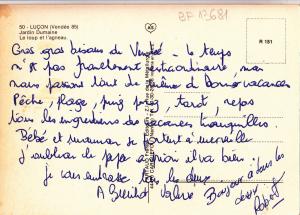 50 - LUÇON (Vendée 85)
Jardin Dumaine
Le loup et l'agneau.
R 151
Gros gros bisous de Vendée - le temps
n'est pas franchement extraordinaire, mais
nous passons tout de même d bonnes vacances
Pêche, Plage, ping pong, tarot, repos
tous les ingrédients des vacances tranquilles.
Bébé et maman se portent à merveille
J'oubliais le papa aussi il va bien.
je vous embrasse tous les deux
A Bientôt Valérie Bonjour à tous les
deux